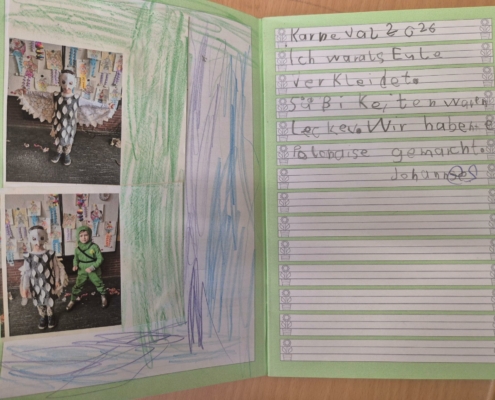 Karneval 2026
Ich war als Eule
verkleidet.
Süßikeiten waren
lecker. Wir haben e
Polonaise gemacht.
Johannes